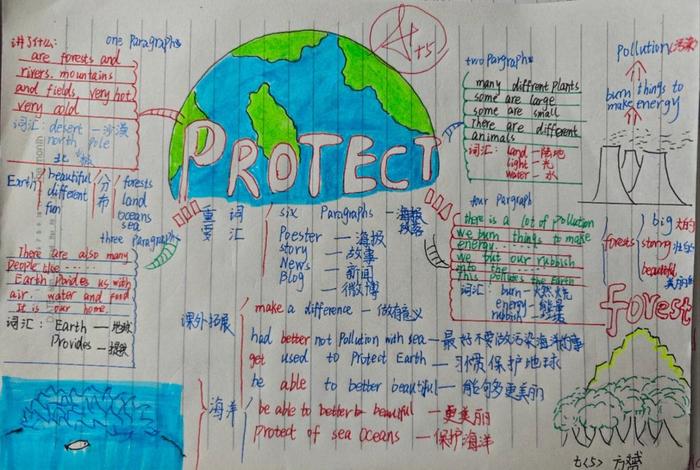 讲了什么:
one Paragraphs
are forests and
rivers. mountains
and fields. very hot
very cold
词汇: desert — 沙漠
north Pole
北极
Earth
beautiful
different
fun
分布
forests
land
oceans
sea
three Paragraphs
There are also many
People like ----
Earth Porides us with
air. water and food
It is our home.
词汇: Earth — 地球
Provides — 提供
A+
+5
PROTECT
two Pargraphs
many diffrent Plants
some are large
some are small
There are different
animals
词汇: land — 陆地
light — 光
water — 水
Pollution(污染)
burn things to
make energy
重要词汇
six Paragraphs — 海报
段落
Poester — 海报
story — 故事
News — 新闻
Blog — (微博
four Pargraph
there is a lot of pollution
we burn things to make
energy
we but our rubbish
into the ----
This pollutes the Earth
词汇: burn — 燃烧
energy — 能量
rubbish — 垃圾
forests
big 大的
strong 壮的
beautiful
美丽的
forest
课外拓展
make a difference — 做有意义
had better not Pollution with sea — 最好不要做污染海洋的事
get used to Protect Earth — 习惯保护地球
be able to better beautiful — 能够多更美丽
海洋
be able to better beautiful — 更美丽
Protect of sea Oceans — 保护海洋
七(5)